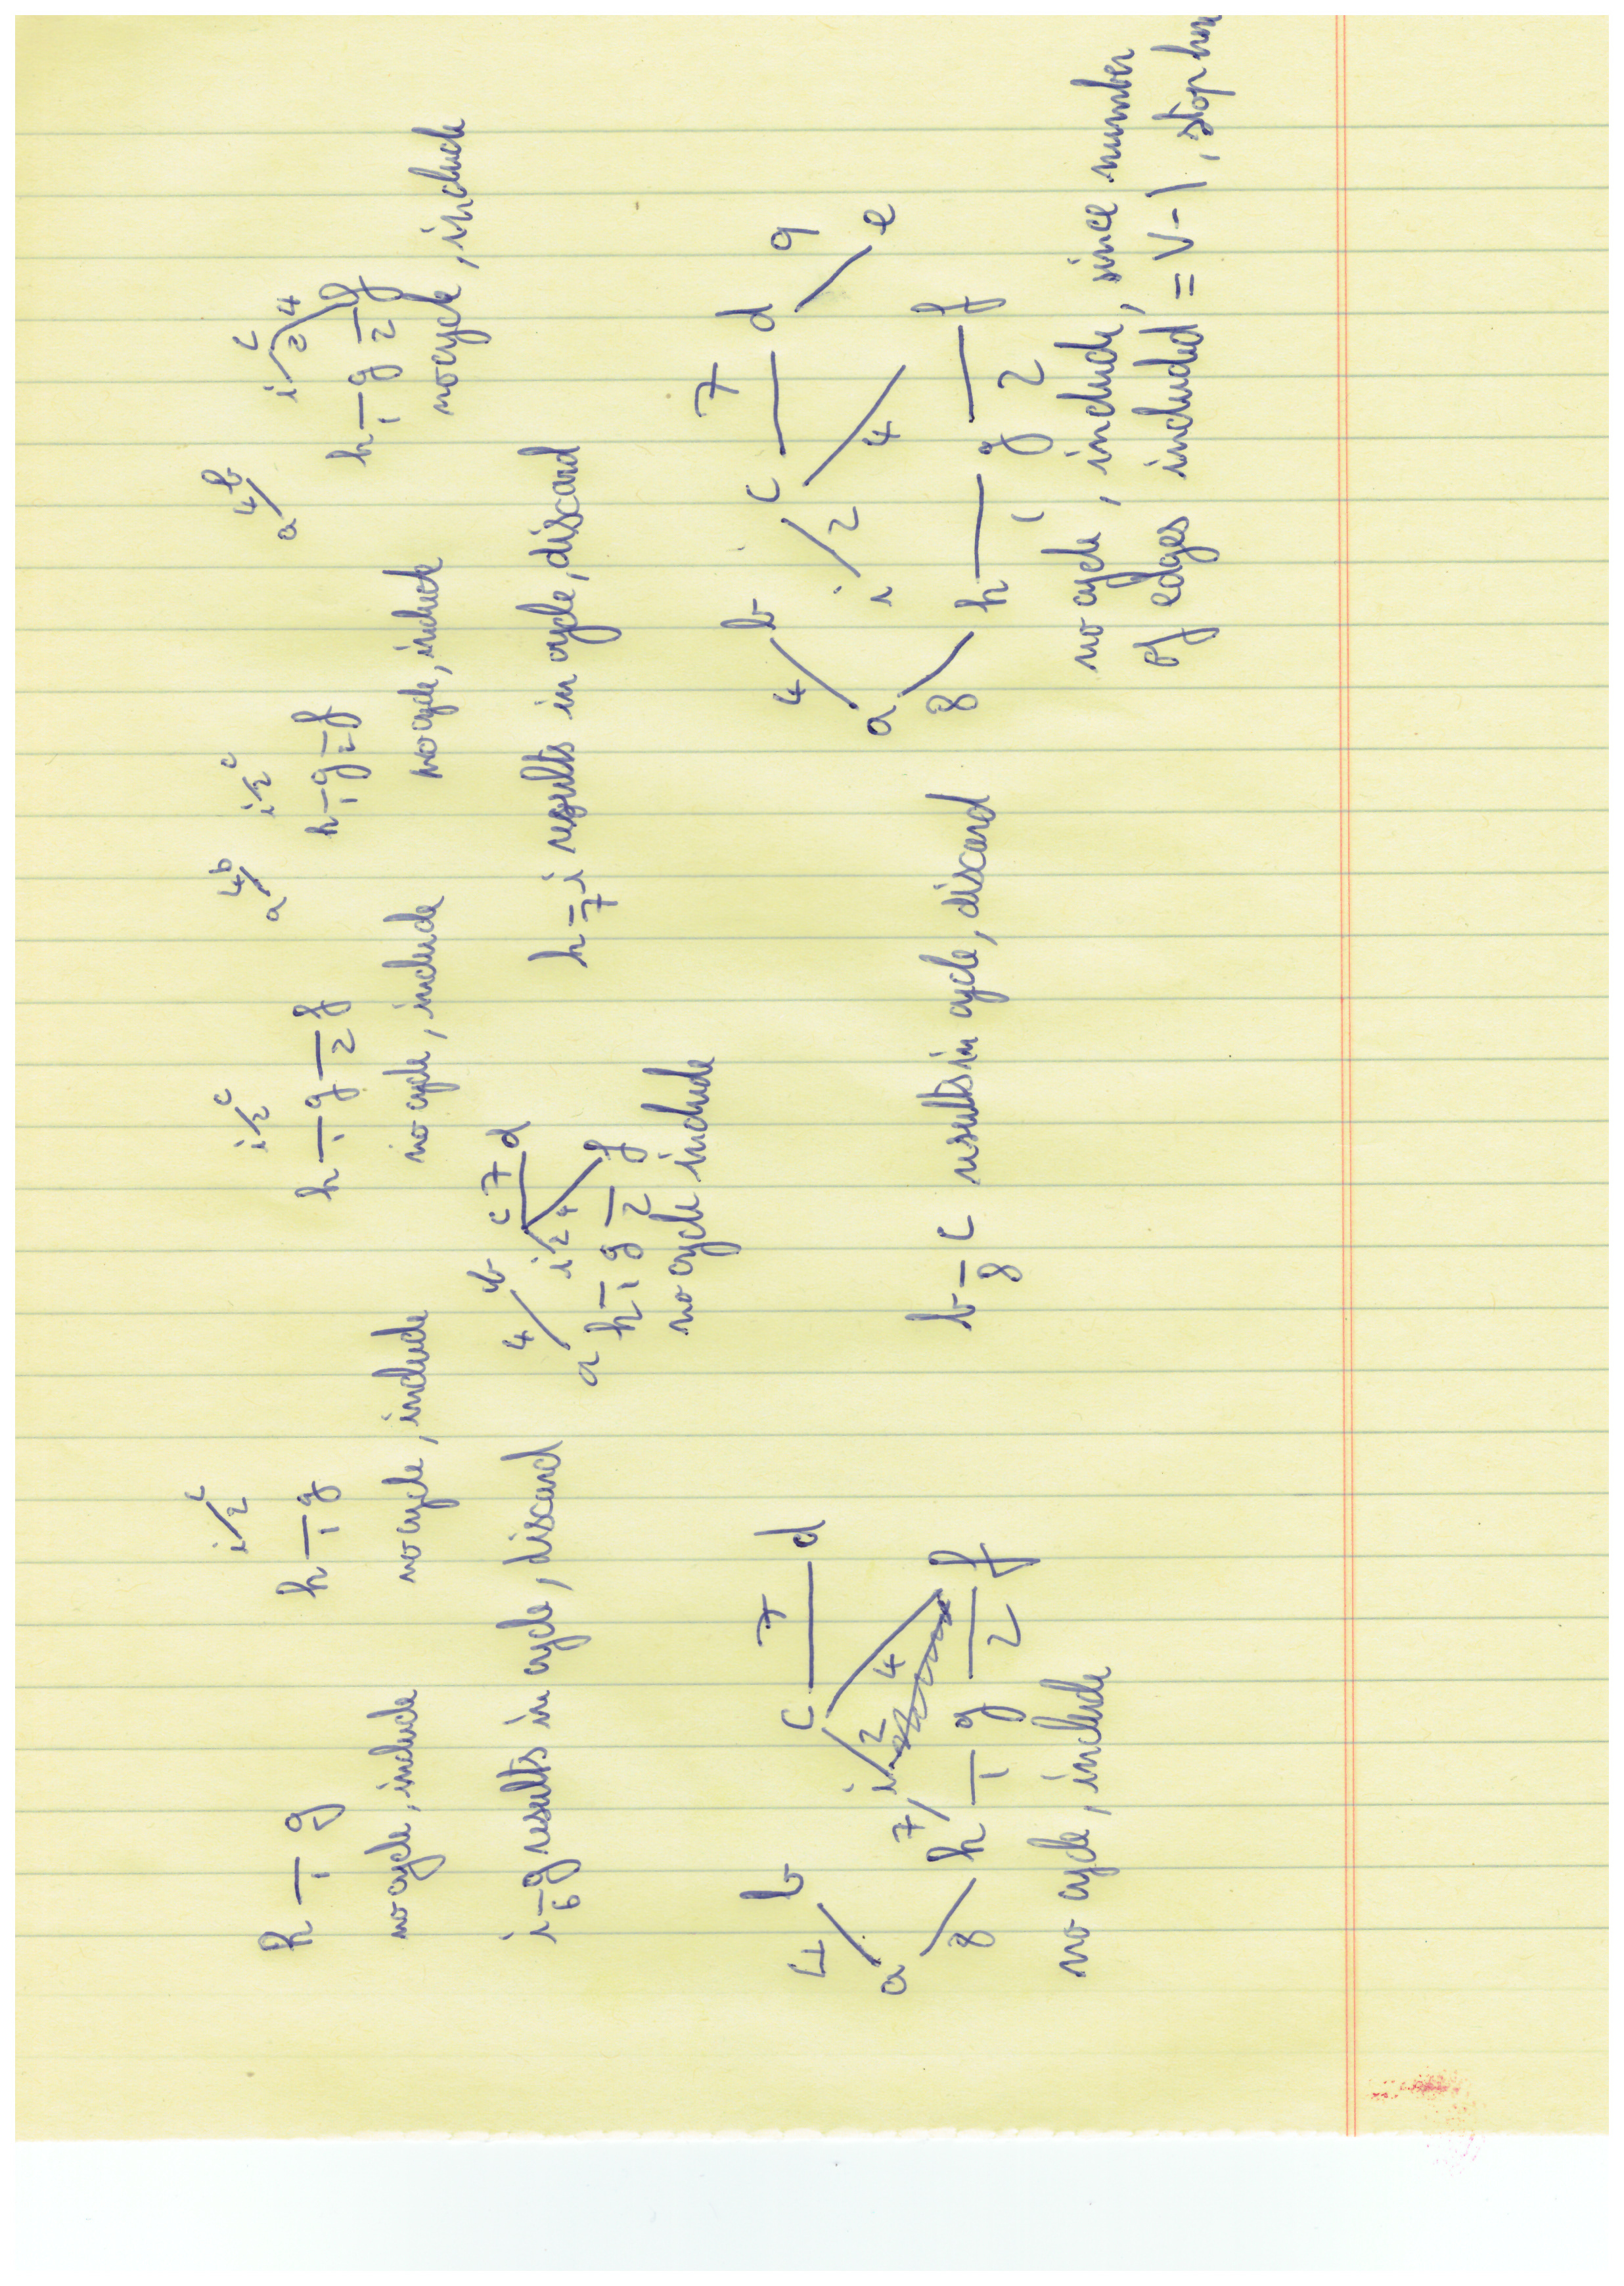 h 1 g
no cycle, include
i 2 c
h 1 g
no cycle, include
i 2 c
h 1 g 2 f
no cycle, include
a 4 b i 2 c
h 1 g 2 f
no cycle, include
a 4 b i 2 c 4
h 1 g 2 f
no cycle, include
i 6 g results in cycle, discard
4 b c 7 d
a i 2 4
h 1 g 2 f
no cycle include
h 7 i results in cycle, discard
4 b c 7 d
a 7 i 2 4
8 h 1 g 2 f
no cycle, include
b 8 c results in cycle, discard
4 b c 7 d 9
a i 2 4 e
8 h 1 g 2 f
no cycle, include, since number
of edges included = V - 1, stop here